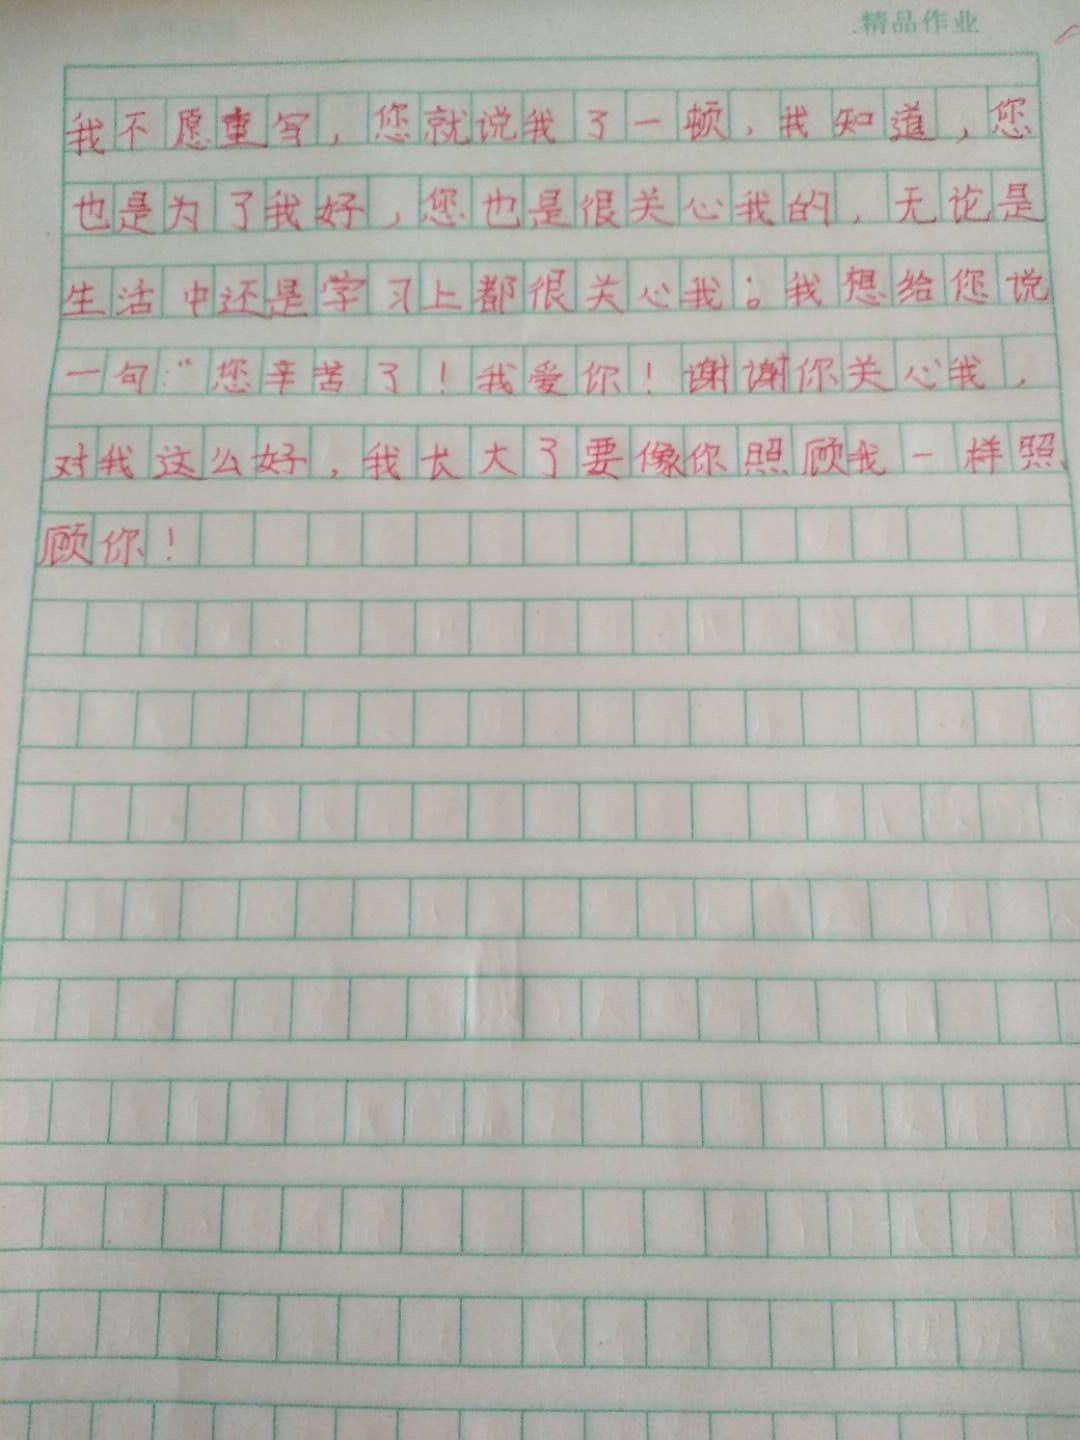 精品作业
我不愿重写，您就说我了一顿，我知道，您
也是为了我好，您也是很关心我的，无论是
生活中还是学习上都很关心我。我想给您说
一句：“您辛苦了！我爱你！谢谢你关心我，
对我这么好，我长大了要像你照顾我一样照
顾你！